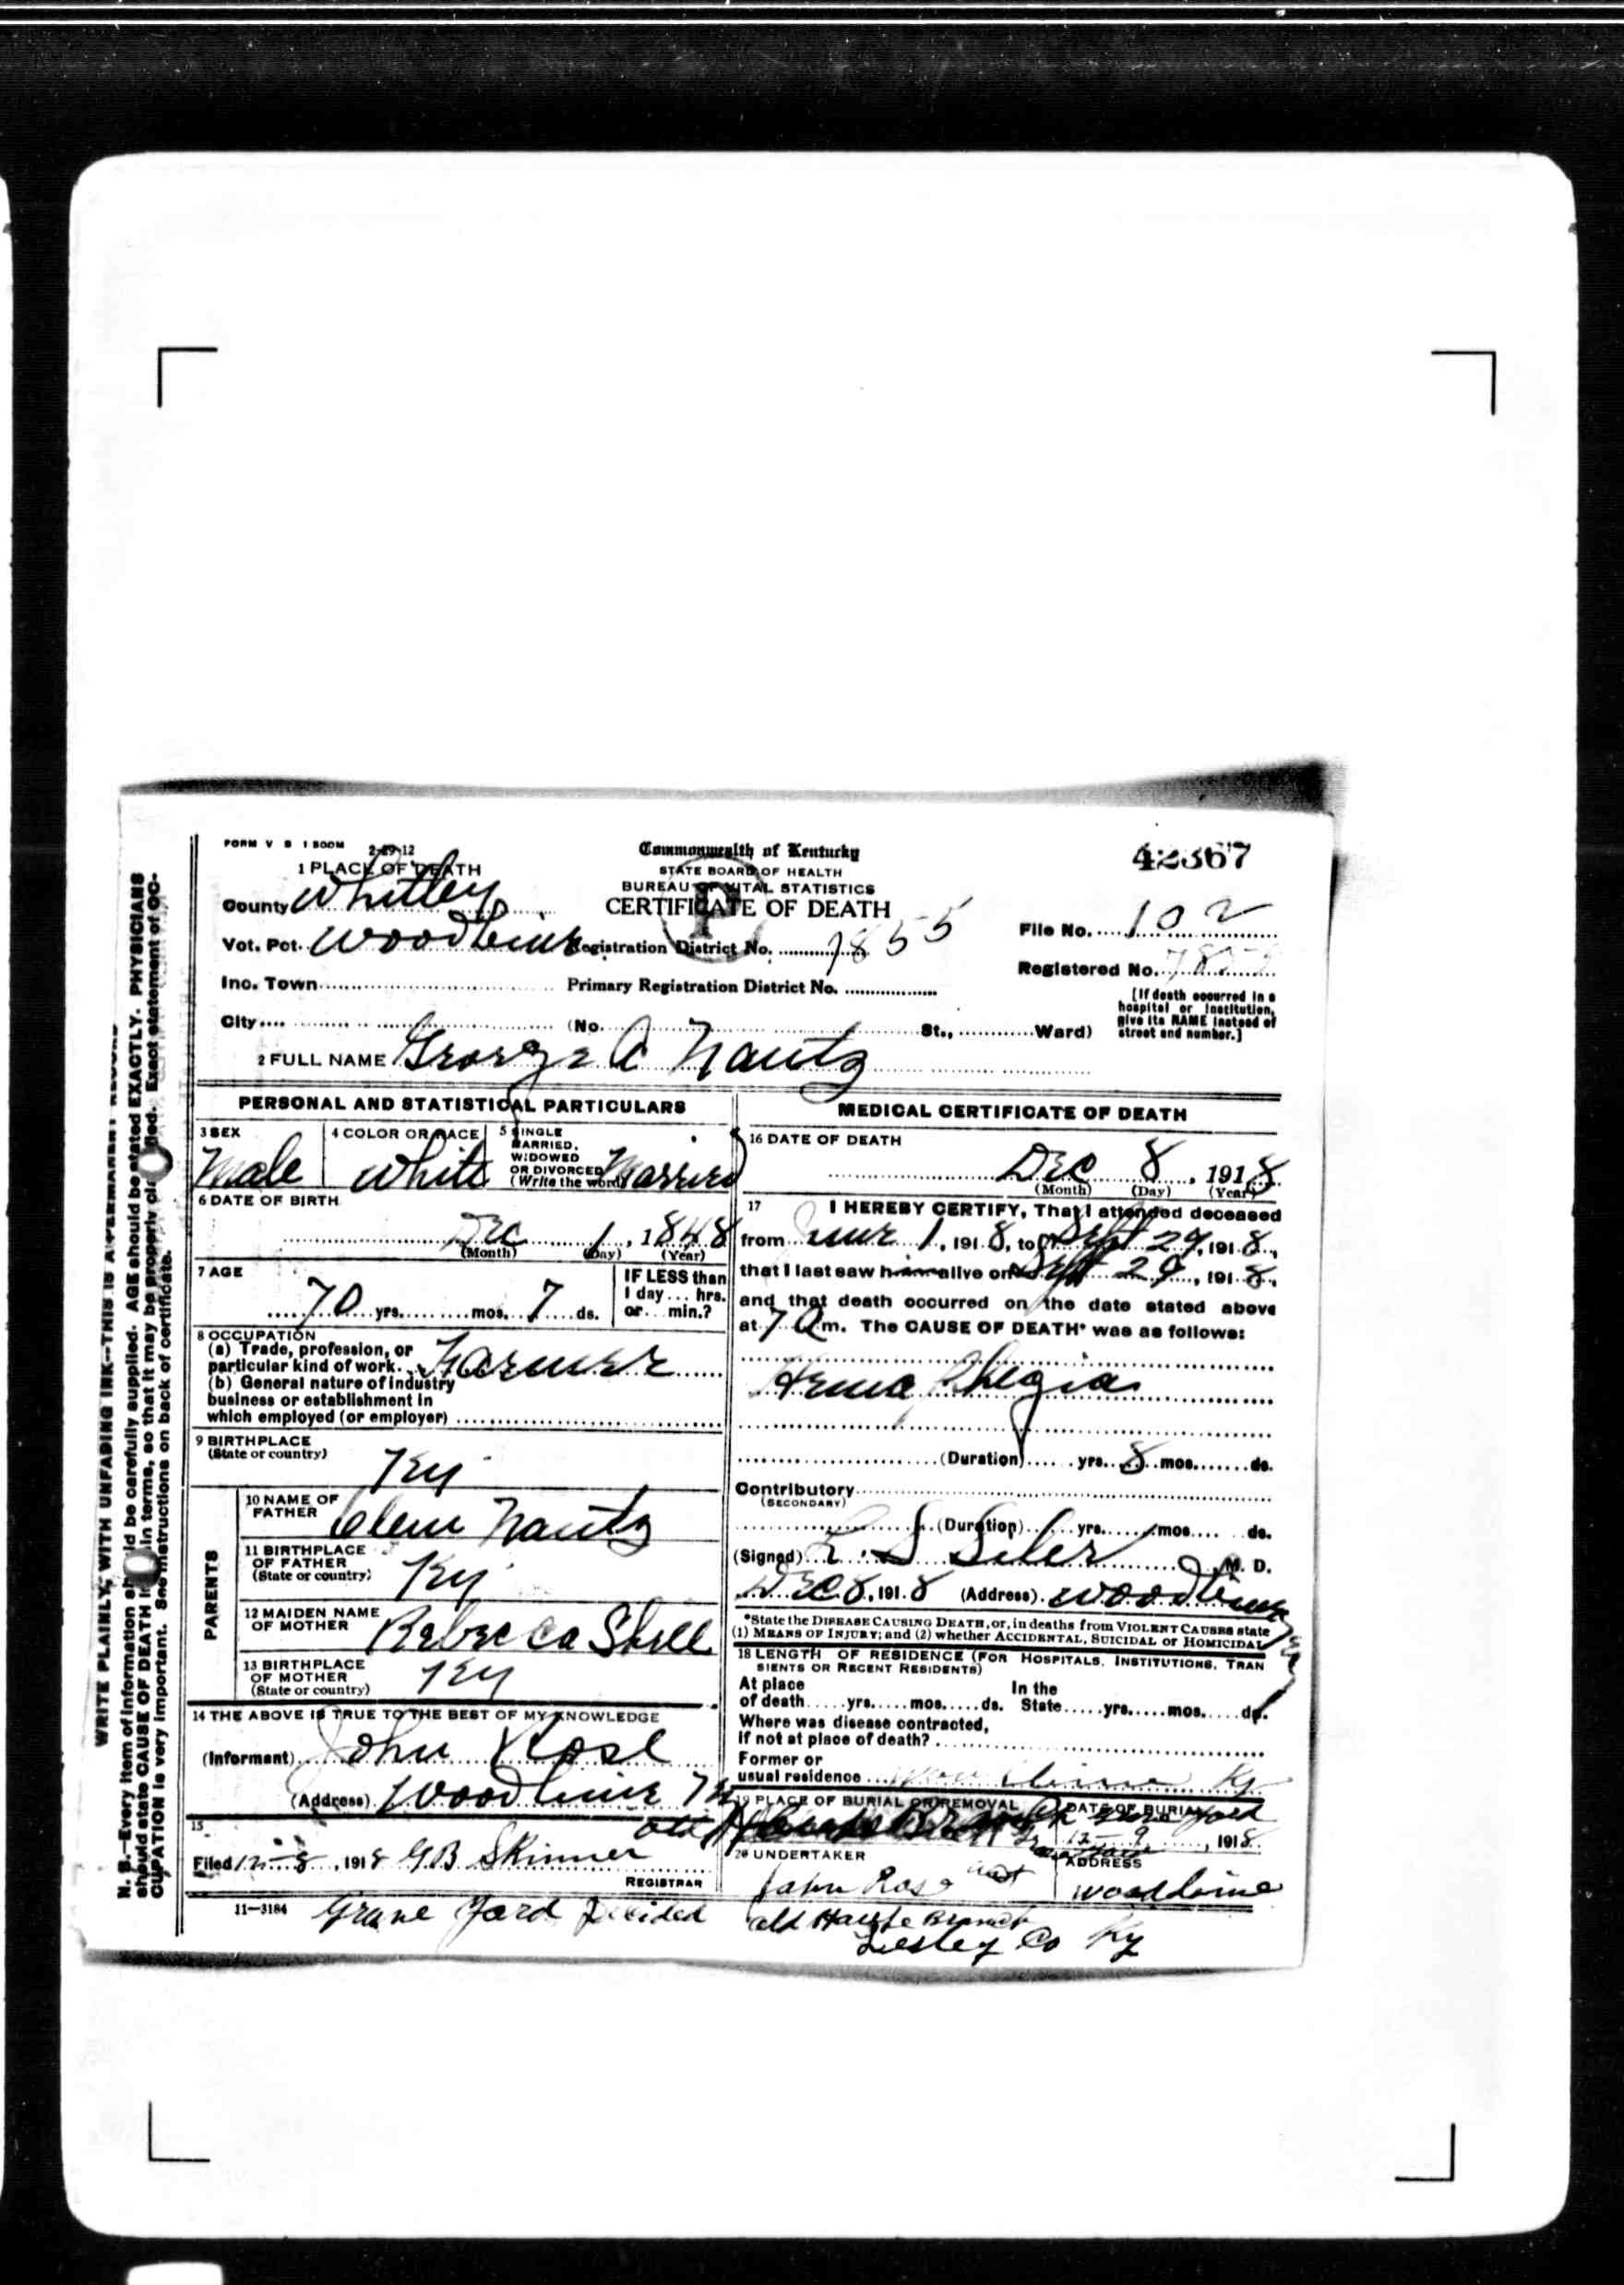 FORM V S 1 500M 2-29-12
Commonwealth of Kentucky
STATE BOARD OF HEALTH
BUREAU OF VITAL STATISTICS
CERTIFICATE OF DEATH
P
42367
1 PLACE OF DEATH
County Whitley
Vot. Pct. Woodbine Registration District No. 7855
File No. 102
Inc. Town Primary Registration District No.
Registered No.
City (No. St., Ward)
[If death occurred in a
hospital or institution,
give its NAME instead of
street and number.]
2 FULL NAME George C Nantz
PERSONAL AND STATISTICAL PARTICULARS
3 SEX Male
4 COLOR OR RACE White
5 SINGLE
MARRIED,
WIDOWED
OR DIVORCED
(Write the word) Married
6 DATE OF BIRTH
Dec 1, 1848
(Month) (Day) (Year)
7 AGE
70 yrs. mos. 7 ds.
IF LESS than
1 day ... hrs.
or ... min.?
8 OCCUPATION
(a) Trade, profession, or
particular kind of work. Farmer
(b) General nature of industry
business or establishment in
which employed (or employer)
9 BIRTHPLACE
(State or country) Ky
PARENTS
10 NAME OF
FATHER Clem Nantz
11 BIRTHPLACE
OF FATHER
(State or country) Ky
12 MAIDEN NAME
OF MOTHER Rebecca Shell
13 BIRTHPLACE
OF MOTHER
(State or country) Ky
14 THE ABOVE IS TRUE TO THE BEST OF MY KNOWLEDGE
(Informant) John Rose
(Address) Woodbine Ky
15
Filed 12-8, 1918 G B Skinner
REGISTRAR
11-3184
MEDICAL CERTIFICATE OF DEATH
16 DATE OF DEATH
Dec 8, 1918
(Month) (Day) (Year)
17 I HEREBY CERTIFY, That I attended deceased
from June 1, 1918, to Sept 29, 1918,
that I last saw him alive on Sept 29, 1918,
and that death occurred on the date stated above
at 7 a m. The CAUSE OF DEATH* was as follows:
Hemaphlegia
(Duration) yrs. 8 mos. ds.
Contributory
(SECONDARY)
(Duration) yrs. mos. ds.
(Signed) L. S Siler M. D.
Dec 8, 1918 (Address) Woodbine Ky
*State the DISEASE CAUSING DEATH, or, in deaths from VIOLENT CAUSES state
(1) MEANS OF INJURY; and (2) whether ACCIDENTAL, SUICIDAL or HOMICIDAL
18 LENGTH OF RESIDENCE (FOR HOSPITALS, INSTITUTIONS, TRAN
SIENTS OR RECENT RESIDENTS)
At place
of death yrs. mos. ds.
In the
State yrs. mos. ds.
Where was disease contracted,
if not at place of death?
Former or
usual residence Woodbine Ky
19 PLACE OF BURIAL OR REMOVAL
DATE OF BURIAL
12-9, 1918
20 UNDERTAKER
John Rose
ADDRESS
Woodbine
Grave Yard
old Branch
Lesley Co Ky
WRITE PLAINLY, WITH UNFADING INK—THIS IS A PERMANENT RECORD
N. B.—Every item of information should be carefully supplied. AGE should be stated EXACTLY. PHYSICIANS
should state CAUSE OF DEATH in plain terms, so that it may be properly classified. Exact statement of OC-
CUPATION is very important. See instructions on back of certificate.